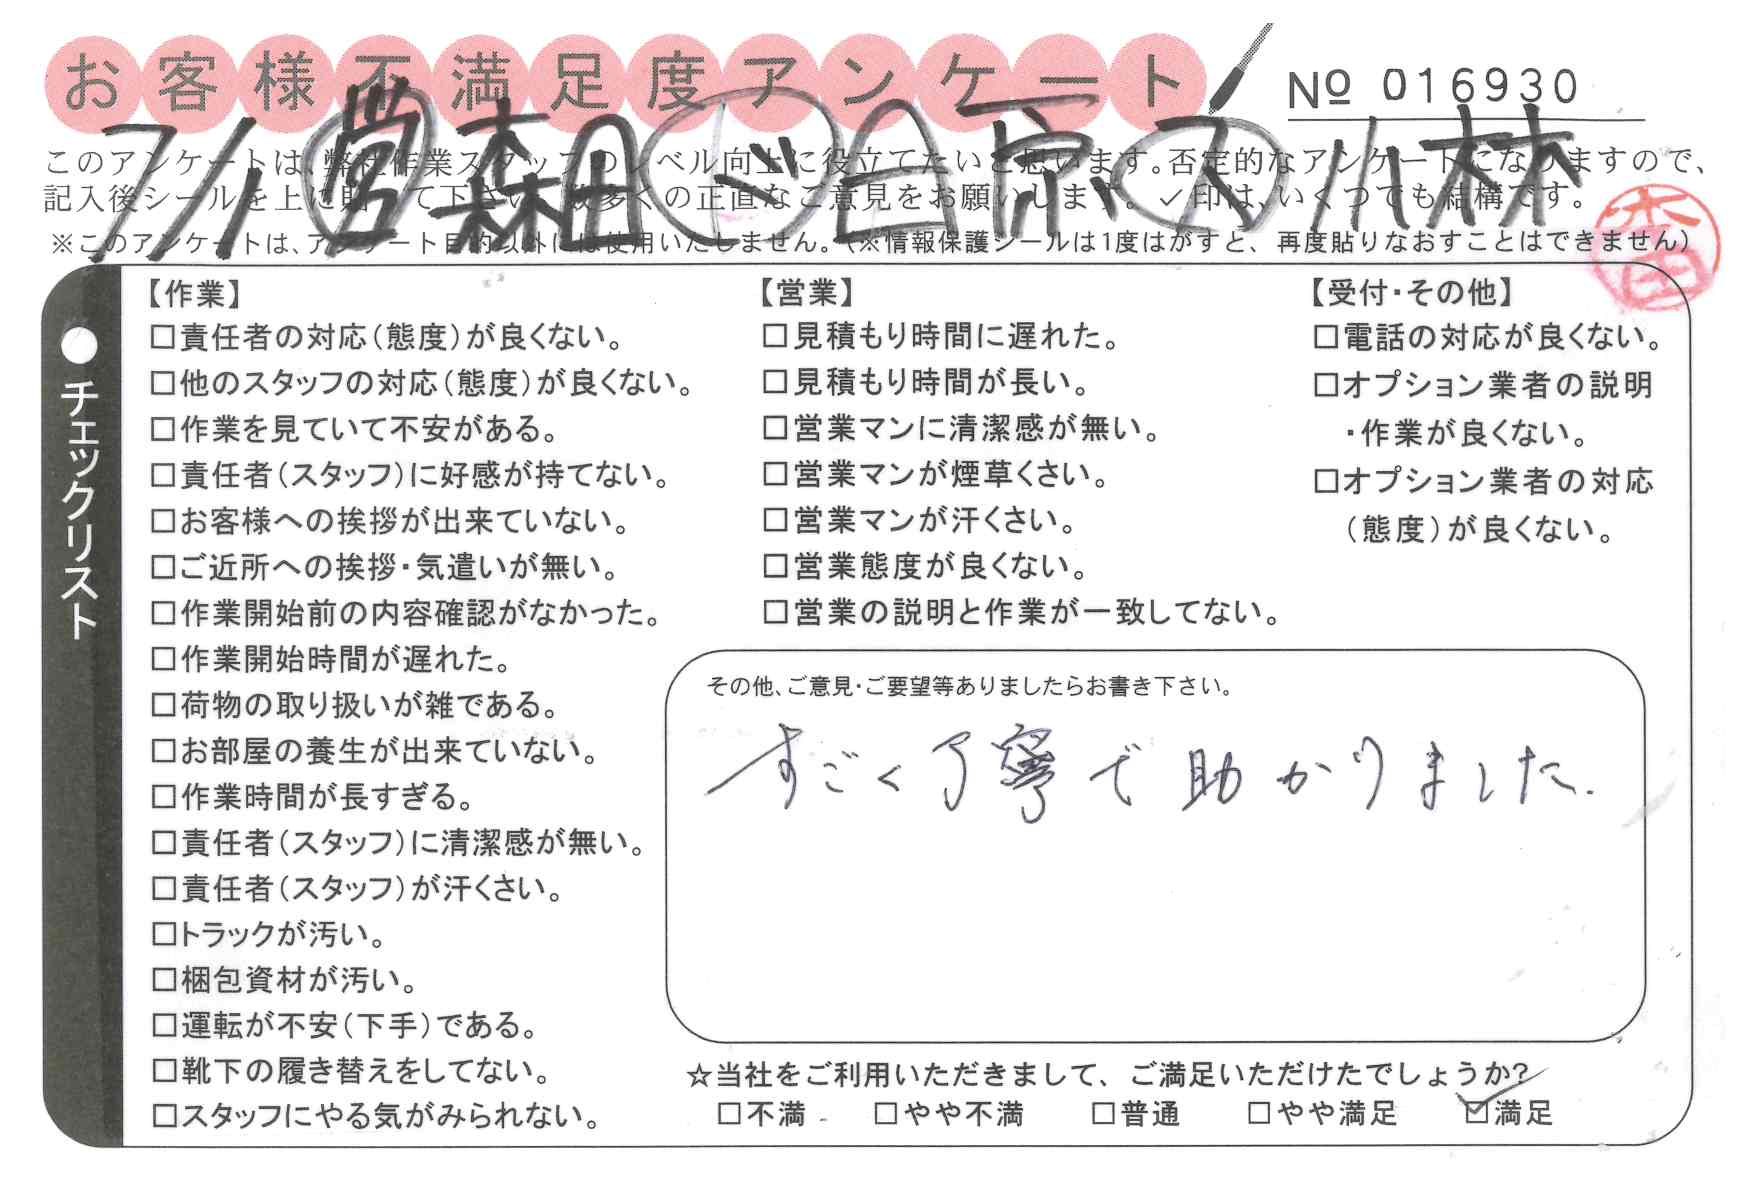 お客様不満足度アンケート
№ 016930
7/1 営 森田 ジ 吉原 ス 小林
このアンケートは、弊社作業スタッフのレベル向上に役立てたいと思います。否定的なアンケートになりますので、
記入後シールを上に貼って下さい。数多くの正直なご意見をお願いします。✓印は、いくつでも結構です。
※このアンケートは、アンケート目的以外には使用いたしません。(※情報保護シールは1度はがすと、再度貼りなおすことはできません)
●チェックリスト
【作業】
□責任者の対応(態度)が良くない。
□他のスタッフの対応(態度)が良くない。
□作業を見ていて不安がある。
□責任者(スタッフ)に好感が持てない。
□お客様への挨拶が出来ていない。
□ご近所への挨拶・気遣いが無い。
□作業開始前の内容確認がなかった。
□作業開始時間が遅れた。
□荷物の取り扱いが雑である。
□お部屋の養生が出来ていない。
□作業時間が長すぎる。
□責任者(スタッフ)に清潔感が無い。
□責任者(スタッフ)が汗くさい。
□トラックが汚い。
□梱包資材が汚い。
□運転が不安(下手)である。
□靴下の履き替えをしてない。
□スタッフにやる気がみられない。
【営業】
□見積もり時間に遅れた。
□見積もり時間が長い。
□営業マンに清潔感が無い。
□営業マンが煙草くさい。
□営業マンが汗くさい。
□営業態度が良くない。
□営業の説明と作業が一致してない。
【受付・その他】
□電話の対応が良くない。
□オプション業者の説明
・作業が良くない。
□オプション業者の対応
(態度)が良くない。
その他、ご意見・ご要望等ありましたらお書き下さい。
すごく丁寧で助かりました.
☆当社をご利用いただきまして、ご満足いただけたでしょうか?
□不満 □やや不満 □普通 □やや満足 ☑満足